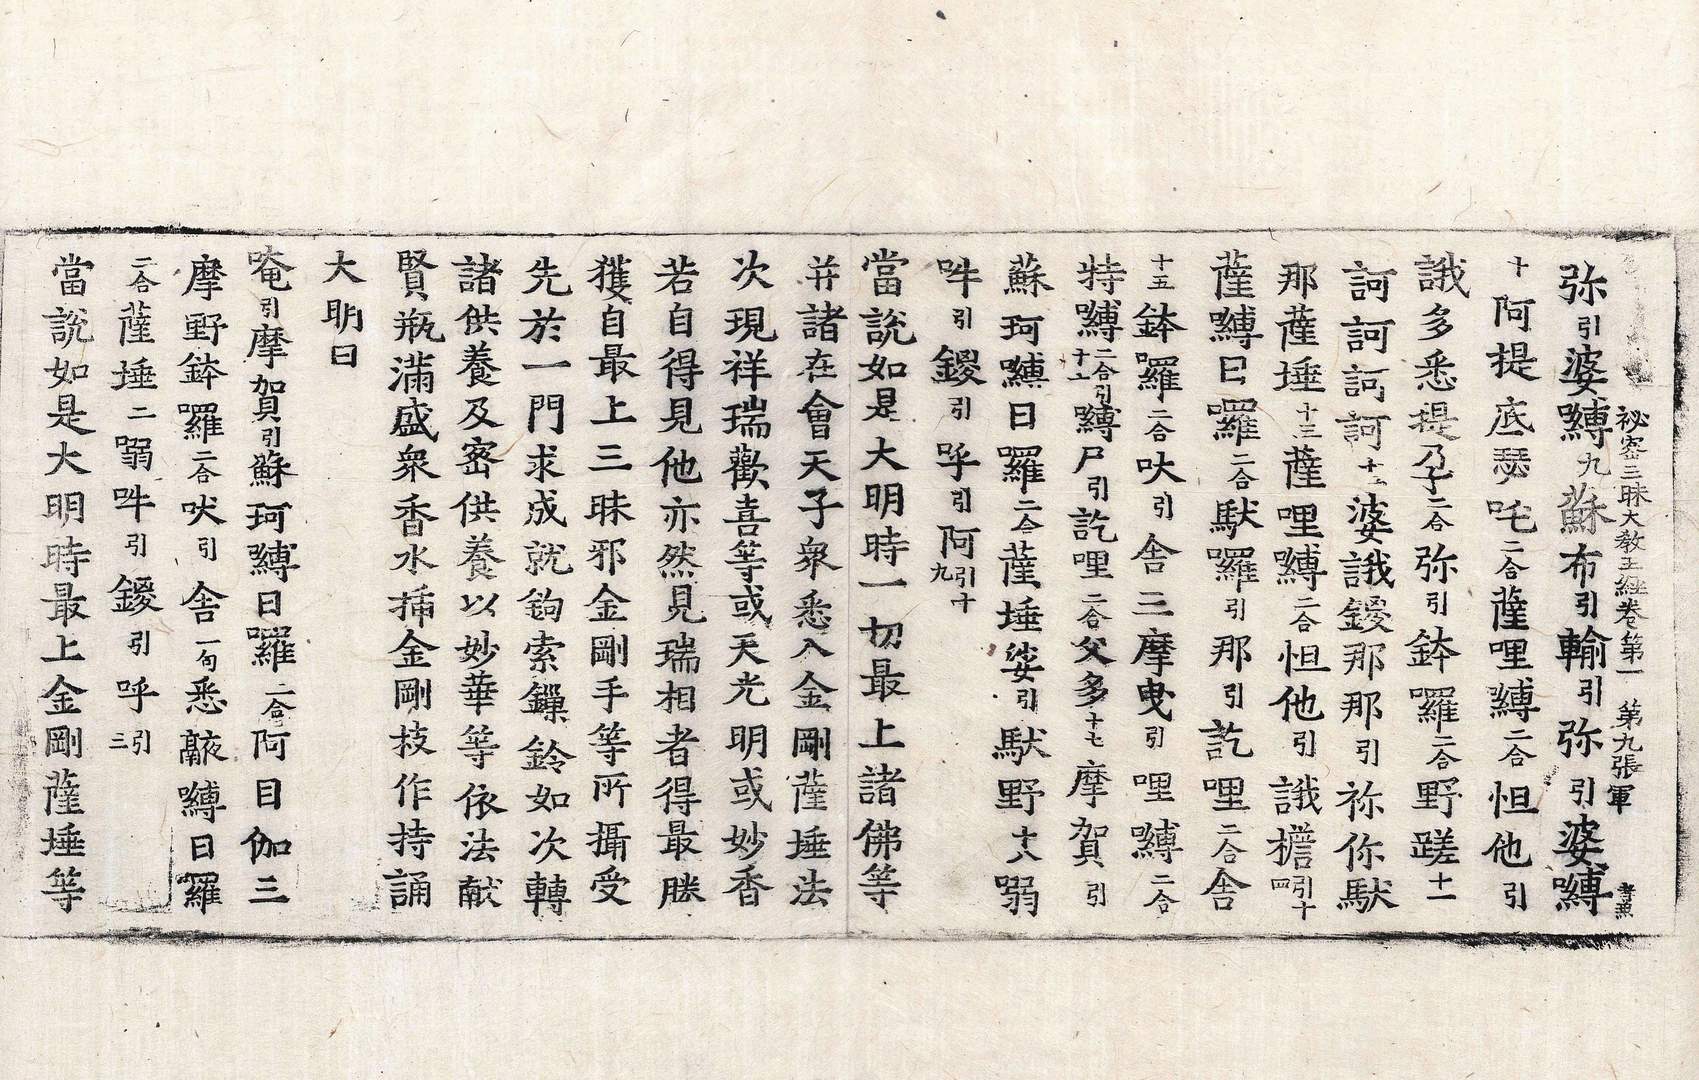 祕密三昧大教王經卷第一　第九張　軍　孝兼
弥引婆嚩九蘇布引輸引弥引婆嚩
十阿提底瑟吒二合薩哩嚩二合怛他引
誐多悉提孕二合弥引鉢囉二合野蹉十一
訶訶訶訶十二婆誐鑁那那引祢你馱
那薩埵十三薩哩嚩二合怛他引誐檐引十四
薩嚩日囉二合馱囉引那引訖哩二合舍
十五鉢囉二合吠引舍三摩曳引哩嚩二合
特嚩二合引十六嚩尸引訖哩二合父多十七摩賀引
蘇珂嚩日囉二合薩埵娑引馱野十八弱
吽引鑁引呼引阿引十九
當說如是大明時一切最上諸佛等
并諸在會天子衆悉入金剛薩埵法
次現祥瑞歡喜等或天光明或妙香
若自得見他亦然見瑞相者得最勝
獲自最上三昧邪金剛手等所攝受
先於一門求成就鉤索鏁鈴如次轉
諸供養及密供養以妙華等依法獻
賢瓶滿盛衆香水揷金剛枝作持誦
大明曰
唵引摩賀引蘇珂嚩日囉二合阿目伽三
摩野鉢囉二合吠引舍一句悉蔽嚩日囉
二合薩埵二弱吽引鑁引呼引三
當說如是大明時最上金剛薩埵等